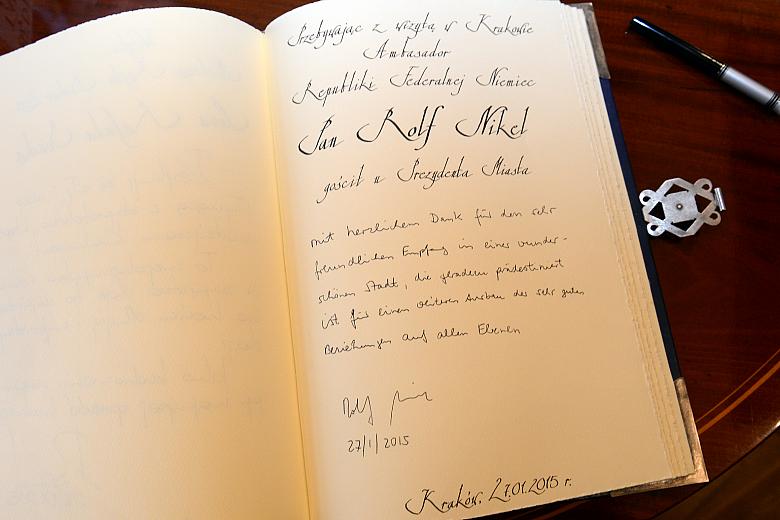 Przebywając z wizytą w Krakowie
Ambasador
Republiki Federalnej Niemiec
Pan Rolf Nikel
gościł u Prezydenta Miasta
mit herzlichem Dank für den sehr
freundlichen Empfang in einer wunder-
schönen Stadt, die geradezu prädestiniert
ist für einen weiteren Ausbau der sehr guten
Beziehungen auf allen Ebenen
Rolf
27/1/2015
Kraków, 27.01.2015 r.